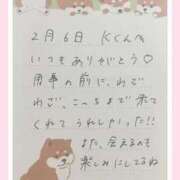 2月6日 Kくんへ
いつもありがとう♡
用事の前に、わざ
わざ、こっちまで来て
くれてうれしかった!!
また、会えるのも
楽しみにしてるね